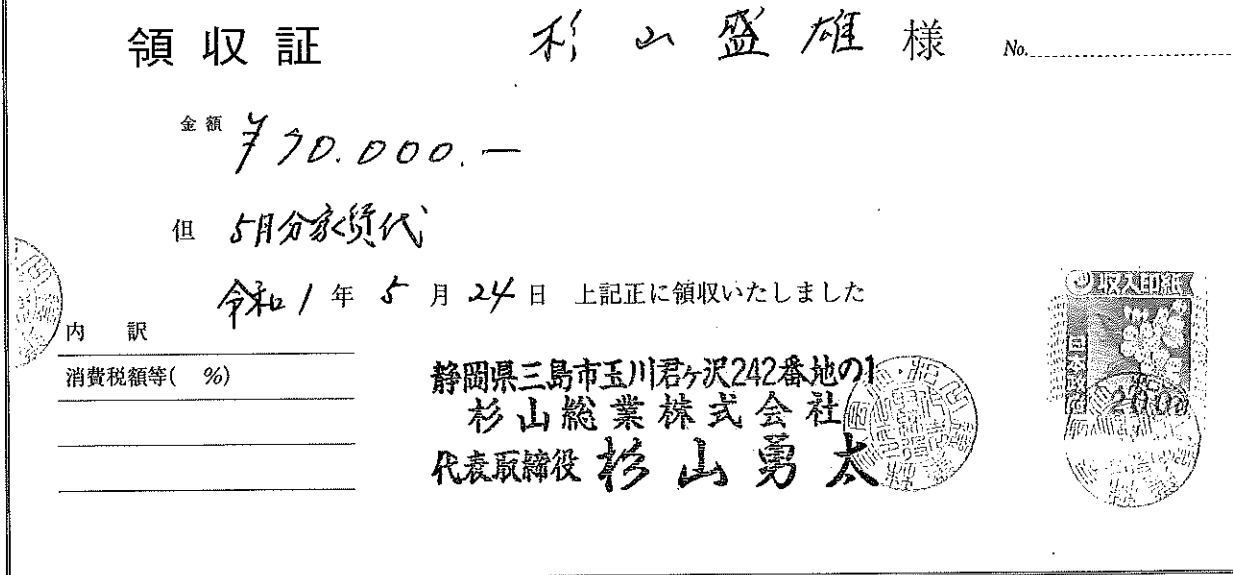 領収証 杉山盛雄 様 No.
金額 ¥70.000.—
但 5月分家賃代
令和1年5月24日 上記正に領収いたしました
内訳
消費税額等( %)
静岡県三島市玉川君ヶ沢242番地の1
杉山総業株式会社
代表取締役 杉山勇太
収入印紙
日本政府
200円